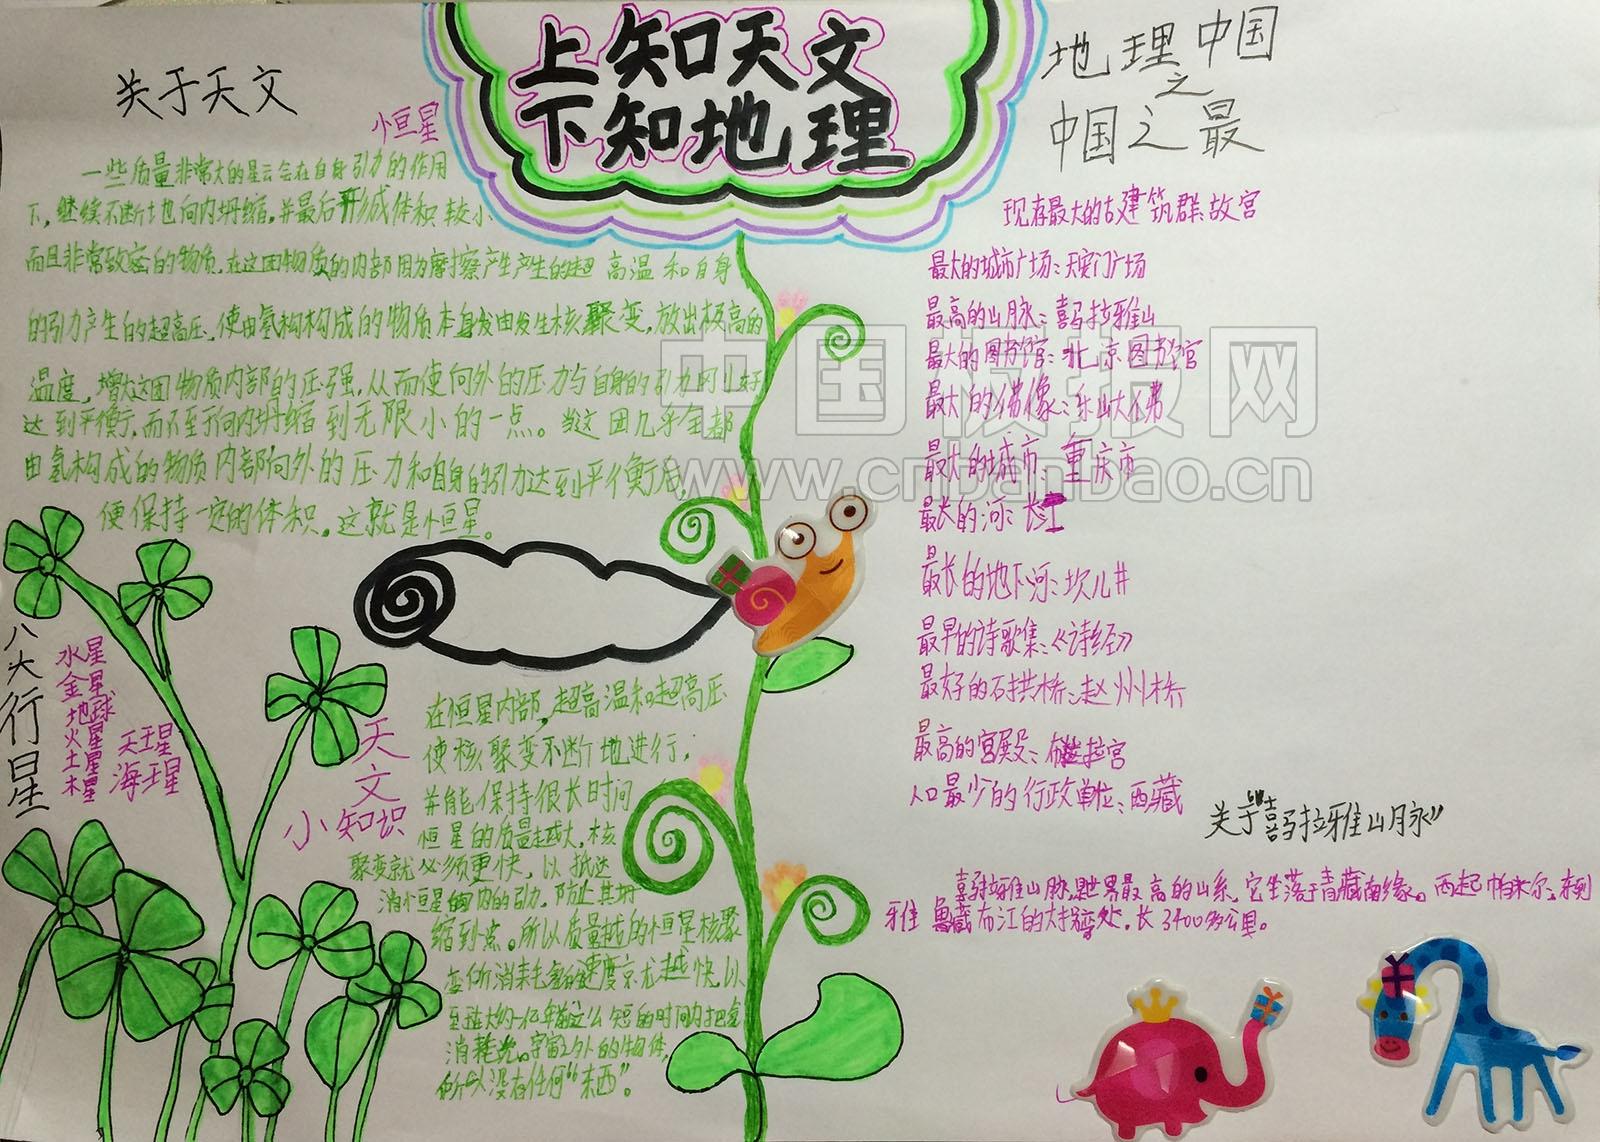 上知天文
下知地理
关于天文
恒星
一些质量非常大的星云会在自身引力的作用
下，继续不断地向内坍缩，并最后形成体积较小
而且非常致密的物质，在这团物质的内部因为摩擦产生产生的超高温和自身
的引力产生的超高压，使由氢构构成的物质本身发由发生核聚变，放出极高的
温度，增大这团物质内部的压强，从而使向外的压力与自身的引力刚好
达到平衡，而不至于向内坍缩到无限小的一点。当这团几乎全部
由氢构成的物质内部向外的压力和自身的引力达到平衡后，
便保持一定的体积。这就是恒星。
八大行星
水星
金星
地球
火星
土星
木星
天王星
海王星
天文
小知识
在恒星内部，超高温和超高压
使核聚变不断地进行，
并能保持很长时间
恒星的质量越大，核
聚变就必须更快，以抵达
消恒星向内的引力，防止其坍
缩到点。所以质量越的恒星核聚
变所消耗氢的速度京尤越快，以
至大约一亿年前这么短的时间内把氢
消耗光。宇宙之外的物体，
所以没有任何“东西”。
地理中国
之
中国之最
现存最大的古建筑群：故宫
最大的城市广场：天安门广场
最高的山脉：喜马拉雅山
最大的图书馆：北京图书馆
最大的佛像：乐山大佛
最大的城市：重庆市
最长的河：长江
最长的地下河：坎儿井
最早的诗歌集：《诗经》
最好的石拱桥：赵州桥
最高的宫殿：布达拉宫
人口最少的行政单位：西藏
关于“喜马拉雅山脉”
喜马拉雅山脉，是世界最高的山系，它坐落于青藏南缘。西起帕米尔，东到
雅鲁藏布江的大拐弯处，长2400多公里。
中国板报网
www.cnbanbao.cn